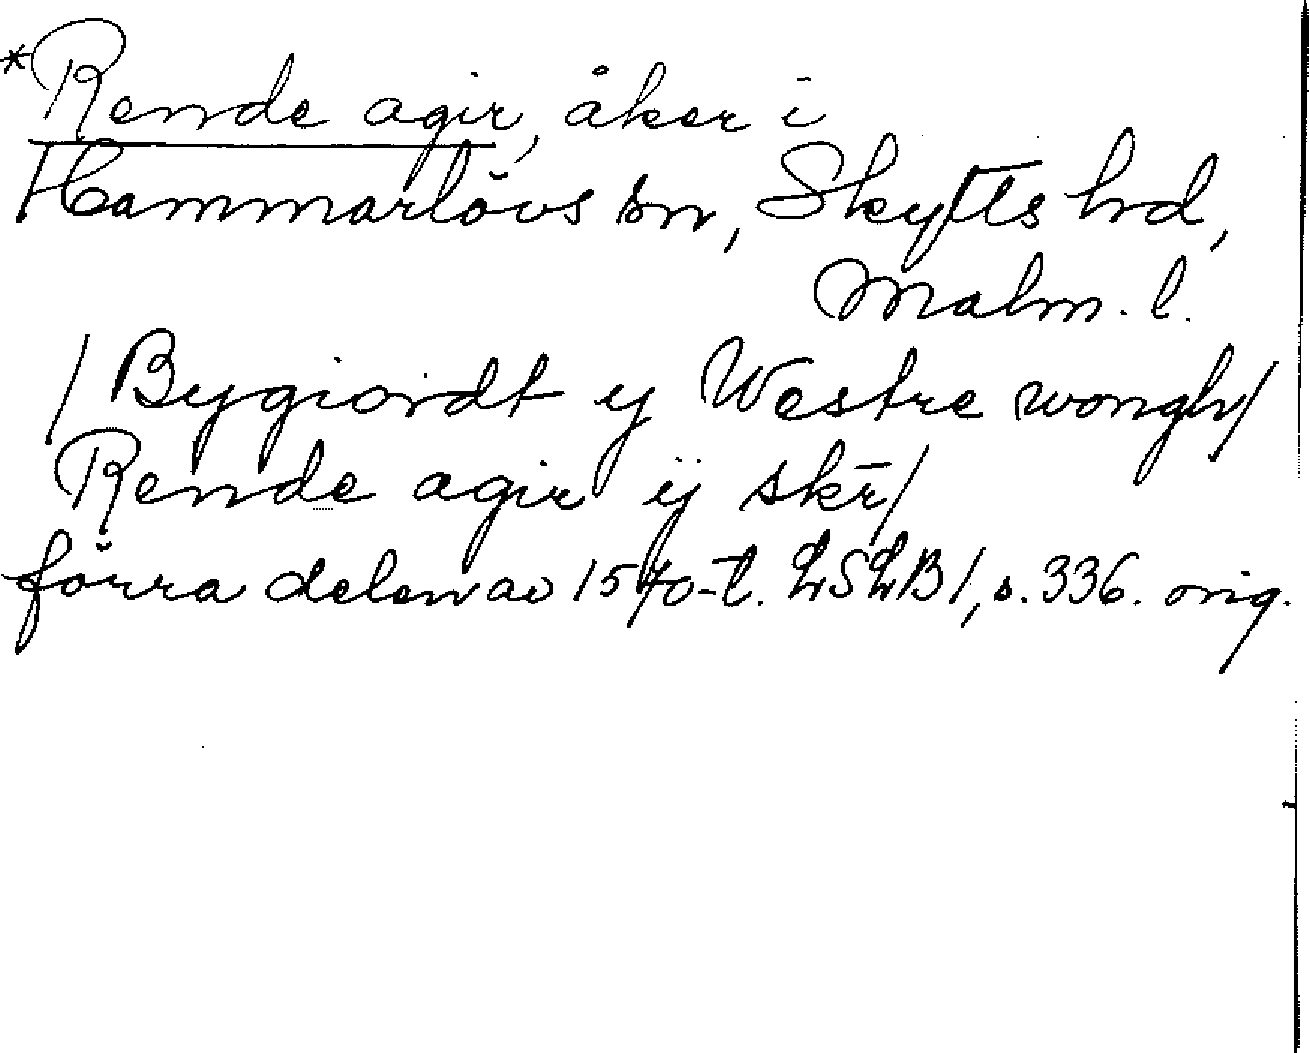 *Rende agir, åker i
Hammarlövs sn, Skytts hd,
Malm. l.
/ Bygiordt y Westre wongh/
Rende agir ij skr̄/
förra delen av 1570-t. LSLB 1, s. 336. orig.